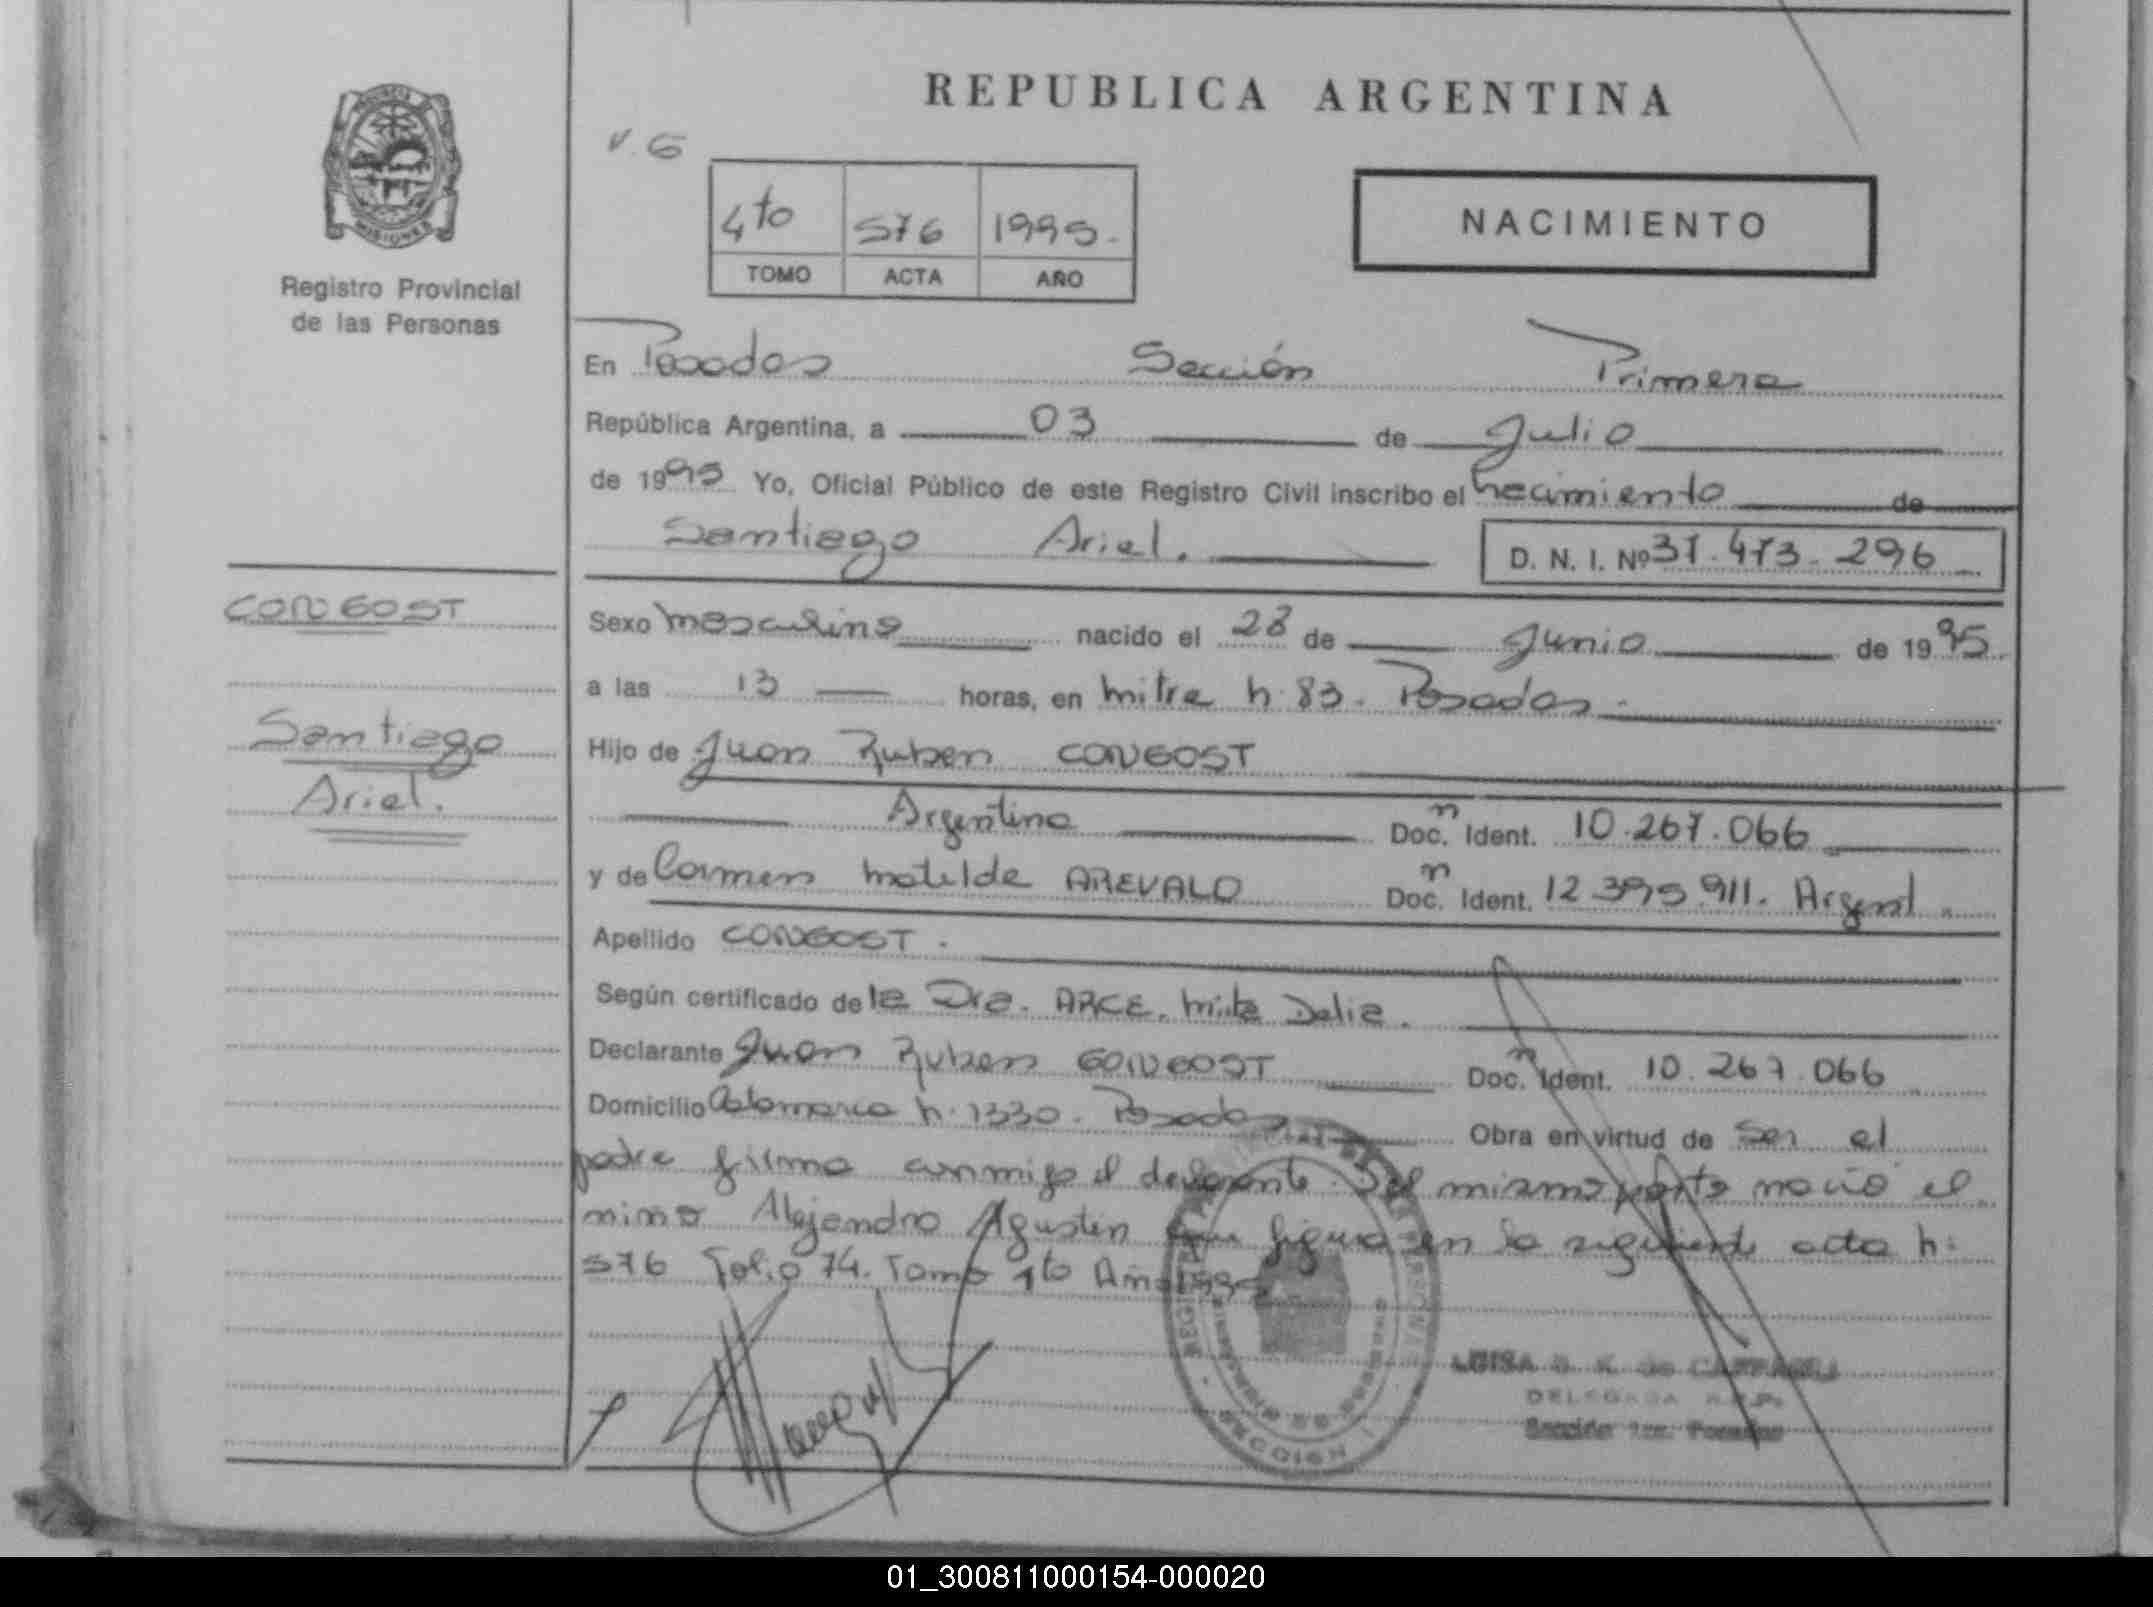 REPUBLICA ARGENTINA
V. G
4to 576 1995.
TOMO ACTA AÑO
NACIMIENTO
MISIONES
Registro Provincial
de las Personas
En Posadas Sección Primera
República Argentina, a 03 de Julio
de 1995 Yo, Oficial Público de este Registro Civil inscribo el nacimiento de
Santiago Ariel. D. N. I. Nº 31.473.296
CONGOST
Santiago
Ariel.
Sexo masculino nacido el 28 de Junio de 1995
a las 13 horas, en Mitre n 83. Posadas.
Hijo de Juan Ruben CONGOST
Argentino Doc. n Ident. 10.267.066
y de Carmen Matilde AREVALO Doc. n Ident. 12.395.911. Argent.
Apellido CONGOST.
Según certificado de la Dra. ARCE, Delia.
Declarante Juan Ruben CONGOST Doc. n Ident. 10.267.066
Domicilio Catamarca n. 1330. Posadas Obra en virtud de ser el
padre firma conmigo el declarante. Del mismo parto nació el
niño Alejandro Agustin que figura en la siguiente acta n:
576 Folio 74. Tomo Año 1995
LUISA de
DELEGADA R.P.P.
Sección 1ra. Posadas
SECCION
01_300811000154-000020